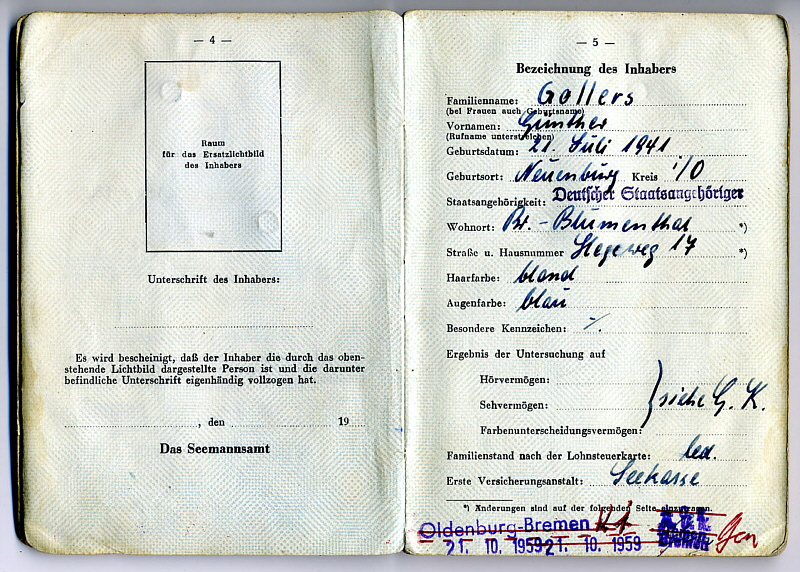 — 4 —
Raum
für das Ersatzlichtbild
des Inhabers
Unterschrift des Inhabers:
Es wird bescheinigt, daß der Inhaber die durch das oben-
stehende Lichtbild dargestellte Person ist und die darunter
befindliche Unterschrift eigenhändig vollzogen hat.
, den 19
Das Seemannsamt
— 5 —
Bezeichnung des Inhabers
Familienname: Gollers
(bei Frauen auch Geburtsname)
Vornamen: Günther
(Rufname unterstreichen)
Geburtsdatum: 21. Juli 1941
Geburtsort: Neuenburg Kreis i/O
Staatsangehörigkeit: Deutscher Staatsangehöriger
Wohnort: Br. - Blumenthal *)
Straße u. Hausnummer Stegeweg 17 *)
Haarfarbe: blond
Augenfarbe: blau
Besondere Kennzeichen: -/.
Ergebnis der Untersuchung auf
Hörvermögen:
Sehvermögen: siehe G. K.
Farbenunterscheidungsvermögen:
Familienstand nach der Lohnsteuerkarte: led.
Erste Versicherungsanstalt: Seekasse
*) Änderungen sind auf der folgenden Seite einzutragen.
Oldenburg-Bremen
Bremen
21. 10. 1959 21. 10. 1959